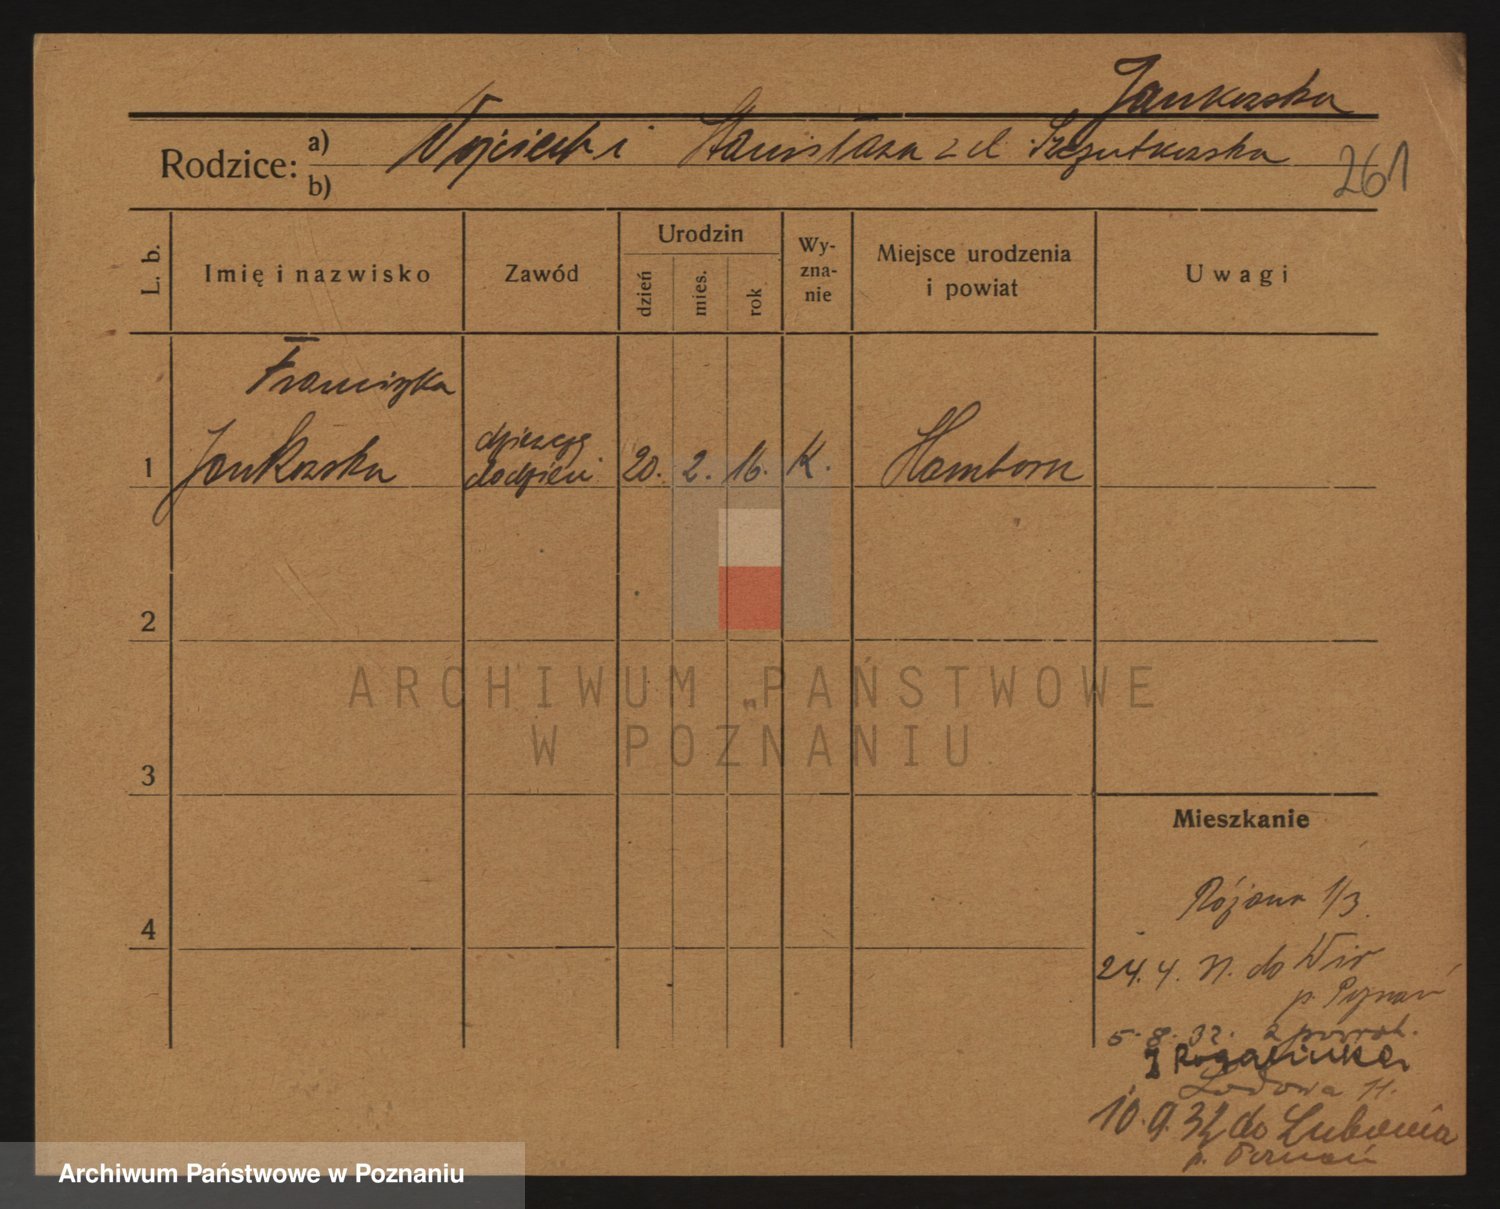 Jankowska
Rodzice: a) Wojciech i Stanisława z d. Szczutkowska
b)
261
L. b.
Imię i nazwisko
Zawód
Urodzin
dzień
mies.
rok
Wy-
zna-
nie
Miejsce urodzenia
i powiat
Uwagi
Franciszka
1 Jankowska
dziewczę
do dzieci
20. 2. 16. K. Hamborn
2
ARCHIWUM PAŃSTWOWE
W POZNANIU
3
Mieszkanie
Różana 1/3
4
24. 4. n. do Wir
p. Poznań
5. 8. 32. z powrot.
Z Rogalinka
Lodowa 11.
10. 9. 32 do Lubonia
p. Poznań
Archiwum Państwowe w Poznaniu